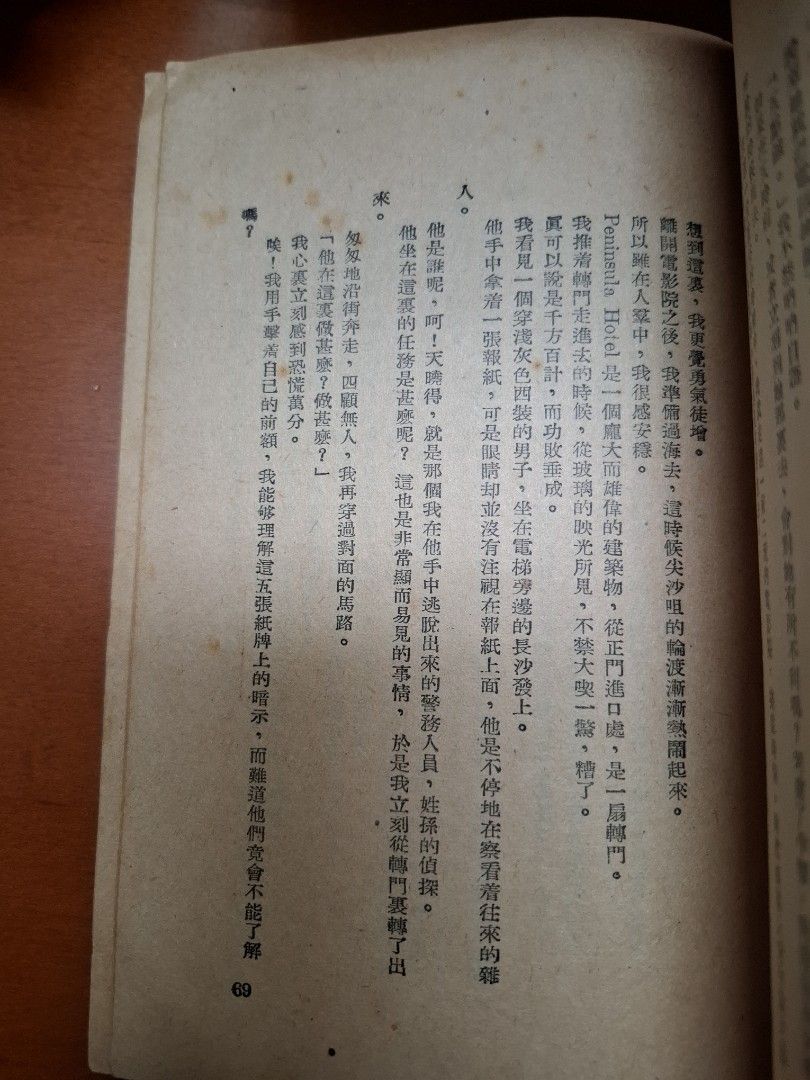 想到這裏，我更覺勇氣徒增。
離開電影院之後，我準備過海去，這時候尖沙咀的輪渡漸漸熱鬧起來。
所以雖在人羣中，我很感安穩。
Peninsula Hotel 是一個龐大而雄偉的建築物，從正門進口處，是一扇轉門。
我推着轉門走進去的時候，從玻璃的映光所見，不禁大喫一驚，糟了。
眞可以說是千方百計，而功敗垂成。
我看見一個穿淺灰色西裝的男子，坐在電梯旁邊的長沙發上。
他手中拿着一張報紙，可是眼睛却並沒有注視在報紙上面，他是不停地在察看着往來的雜
人。
他是誰呢，呵！天曉得，就是那個我在他手中逃脫出來的警務人員，姓孫的偵探。
他坐在這裏的任務是甚麼呢？這也是非常顯而易見的事情，於是我立刻從轉門裏轉了出
來。
匆匆地沿街奔走，四顧無人，我再穿過對面的馬路。
「他在這裏做甚麼？做甚麼？」
我心裏立刻感到恐慌萬分。
唉！我用手擊着自己的前額，我能够理解這五張紙牌上的暗示，而難道他們竟會不能了解
嗎？
69